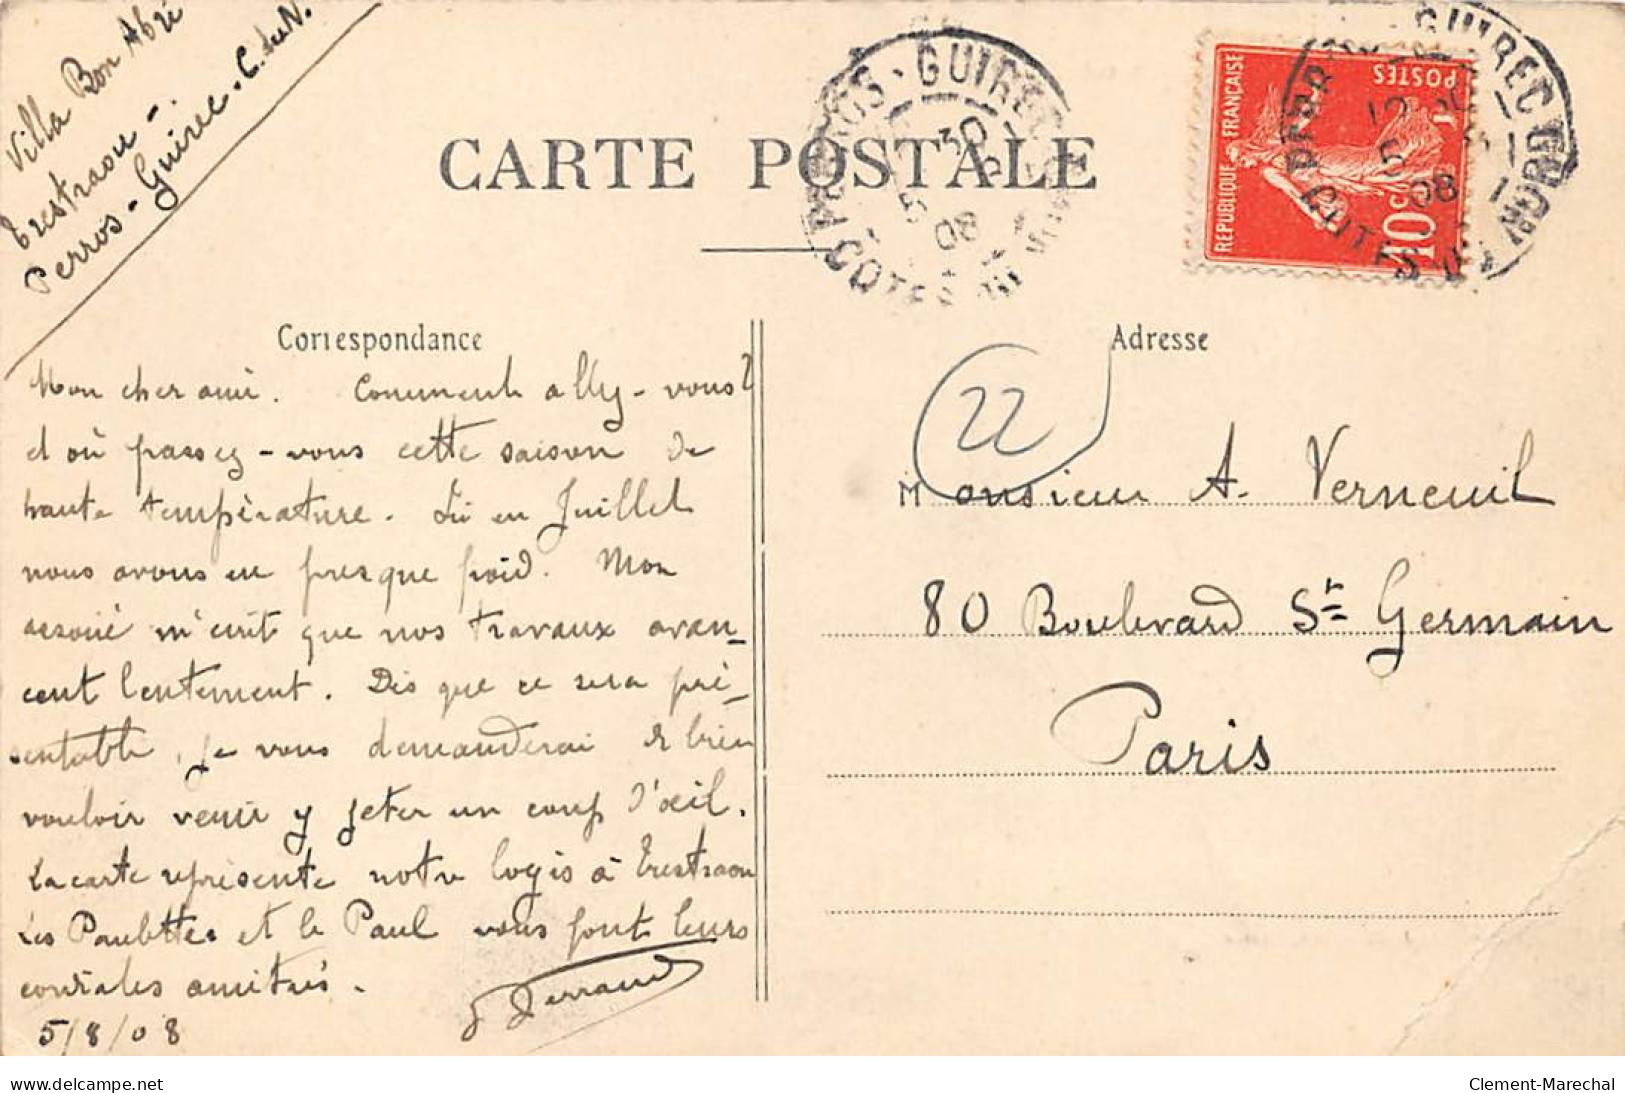 Villa Bon Abri
Trestraou -
Perros - Guirec - C. du N.
CARTE POSTALE
PERROS-GUIREC
5 8
08
COTES DU NORD
REPUBLIQUE FRANÇAISE
POSTES
10 C
GUIREC
5 8
08
COTES DU NORD
Correspondance
Adresse
22
Mon cher ami. Comment allez-vous?
et où passez-vous cette saison de
haute température. Ici en Juillet
nous avons eu presque froid. Mon
associé m'écrit que nos travaux avan-
cent lentement. Dès que ce sera pré-
sentable, je vous demanderai de bien
vouloir venir y jeter un coup d'œil.
La carte représente notre logis à Trestraou
Les Paulettes et le Paul vous font leurs
cordiales amitiés.
5/8/08
Monsieur A. Verneuil
80 Boulevard St Germain
Paris
www.delcampe.net
Clement-Marechal